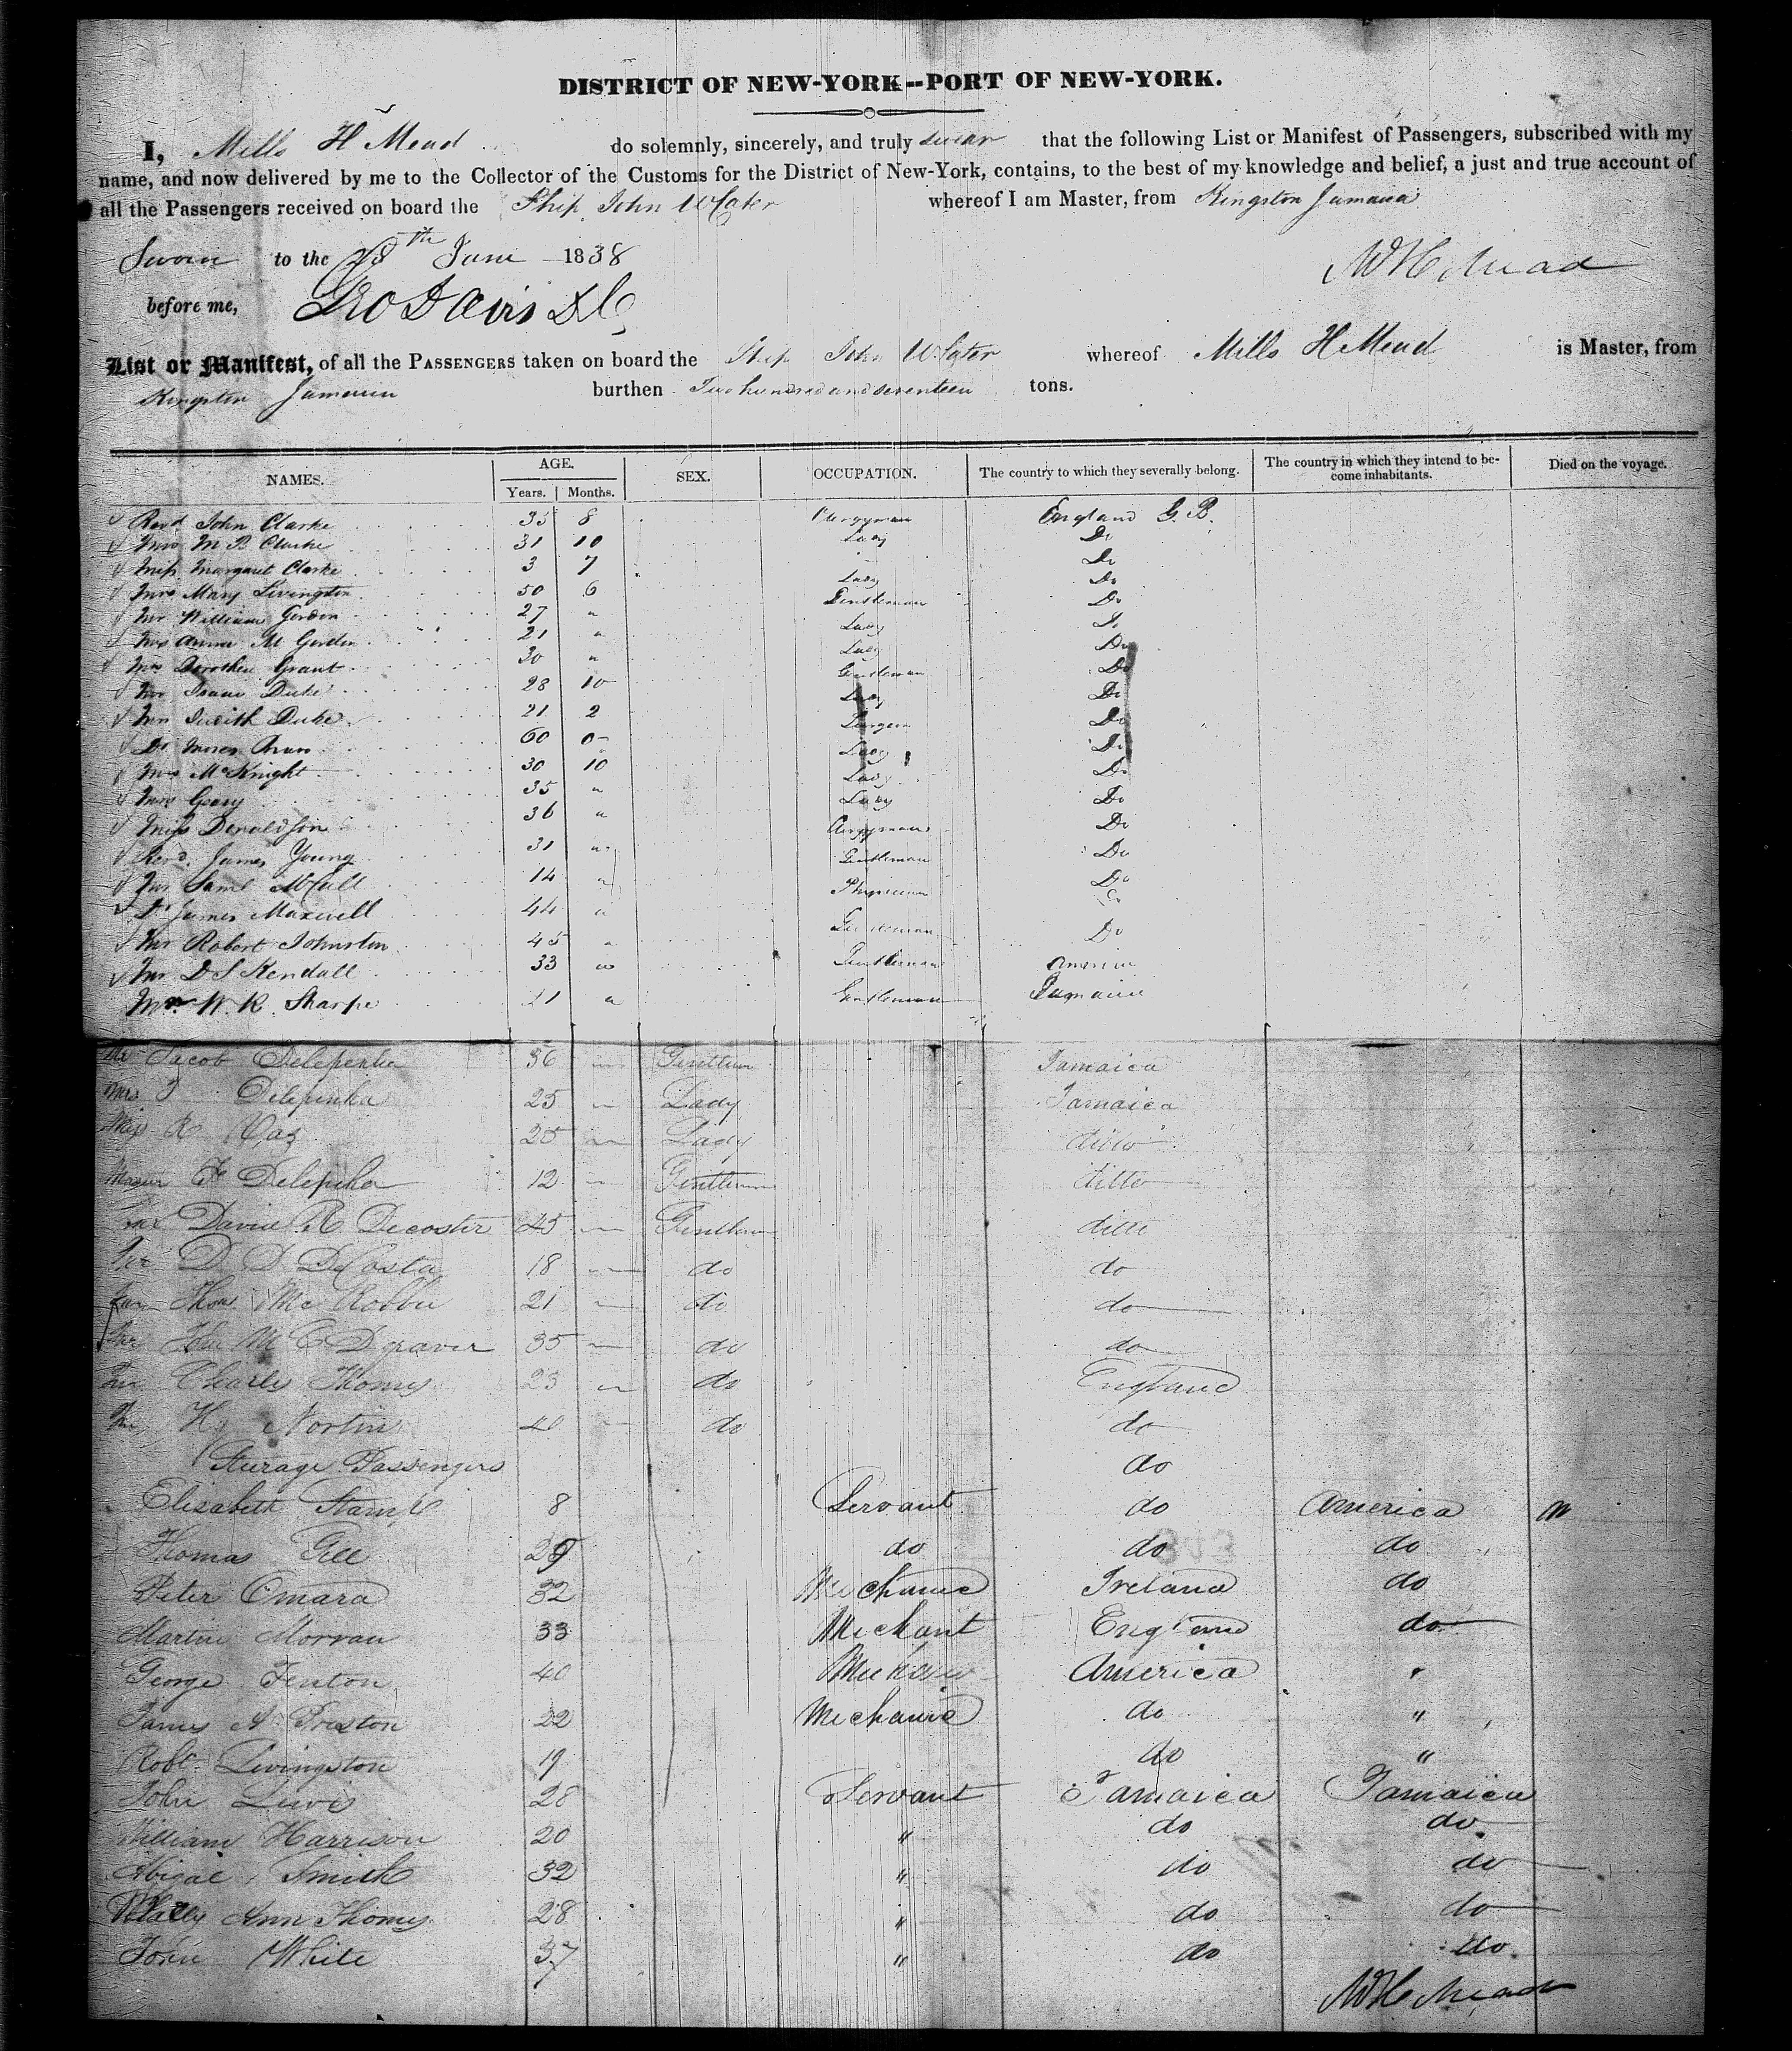 DISTRICT OF NEW-YORK--PORT OF NEW-YORK.
I, Mills H Mead do solemnly, sincerely, and truly swear that the following List or Manifest of Passengers, subscribed with my
name, and now delivered by me to the Collector of the Customs for the District of New-York, contains, to the best of my knowledge and belief, a just and true account of
all the Passengers received on board the Ship John W Cater whereof I am Master, from Kingston Jamaica
Sworn to the 28th June 1838
M H Mead
before me, Geo Davis D C
List or Manifest, of all the PASSENGERS taken on board the Ship John W Cater whereof Mills H Mead is Master, from
Kingston Jamaica burthen Two hundred and seventeen tons.
NAMES. AGE. Years. Months. SEX. OCCUPATION. The country to which they severally belong. The country in which they intend to become inhabitants. Died on the voyage.
Revd John Clarke 35 8 Clergyman England G. B.
Mrs M B Clarke 31 10 Lady Do
Miss Margaret Clarke 3 7 Do
Mrs Mary Livingston 50 6 Lady Do
Mr William Gordon 27 " Gentleman Do
Mrs Anna M Gordon 21 " Lady Do
Mrs Dorothea Grant 30 " Lady Do
Mr Isaac Duke 28 10 Gentleman Do
Mrs Judith Duke 21 2 Lady Do
Dr Moses 60 0 Surgeon Do
Mrs McKnight 30 10 Lady Do
Mrs Geary 35 " Lady Do
Miss Donaldson 36 " Lady Do
Revd. James Young 31 " Clergyman Do
Mr Saml McCall 14 " Gentleman Do
Dr James Maxwell 44 " Physician Do
Mr Robert Johnston 45 " Gentleman Do
Mr D S Kendall 33 " Gentleman America
Mr. W. R. Sharpe 21 " Gentleman Jamaica
Mr Jacob Delepenha 36 Gentlem Jamaica
Mrs Delepenha 25 Lady Jamaica
Miss R Vaz 25 Lady ditto
Master Delepenha 12 Gentleman ditto
David R Decoster 45 Gentleman ditto
Mr D D DCosta 18 do do
Mr Thos McRobbie 21 do do
Mr M C Dgraver 35 do do
Mr Charles Thomas 23 do England
Mr Hy Nortin 40 do do
Sturage Passengers do
Elisabeth Stamp 8 Servant do America
Thomas Gill 29 do do do
Peter Omara 32 Mechanic Ireland do
Martin Morran 33 Mechant England do
George Fenton 40 America "
James A. Preston 22 Mechanic do "
Robt. Livingston 19 do "
John Lewis 28 Servant Jamaica Jamaica
William Harrison 20 " do do
Abigal Smith 32 " do do
Ann Thomas 28 " do do
John White 37 " do do
M H Mead